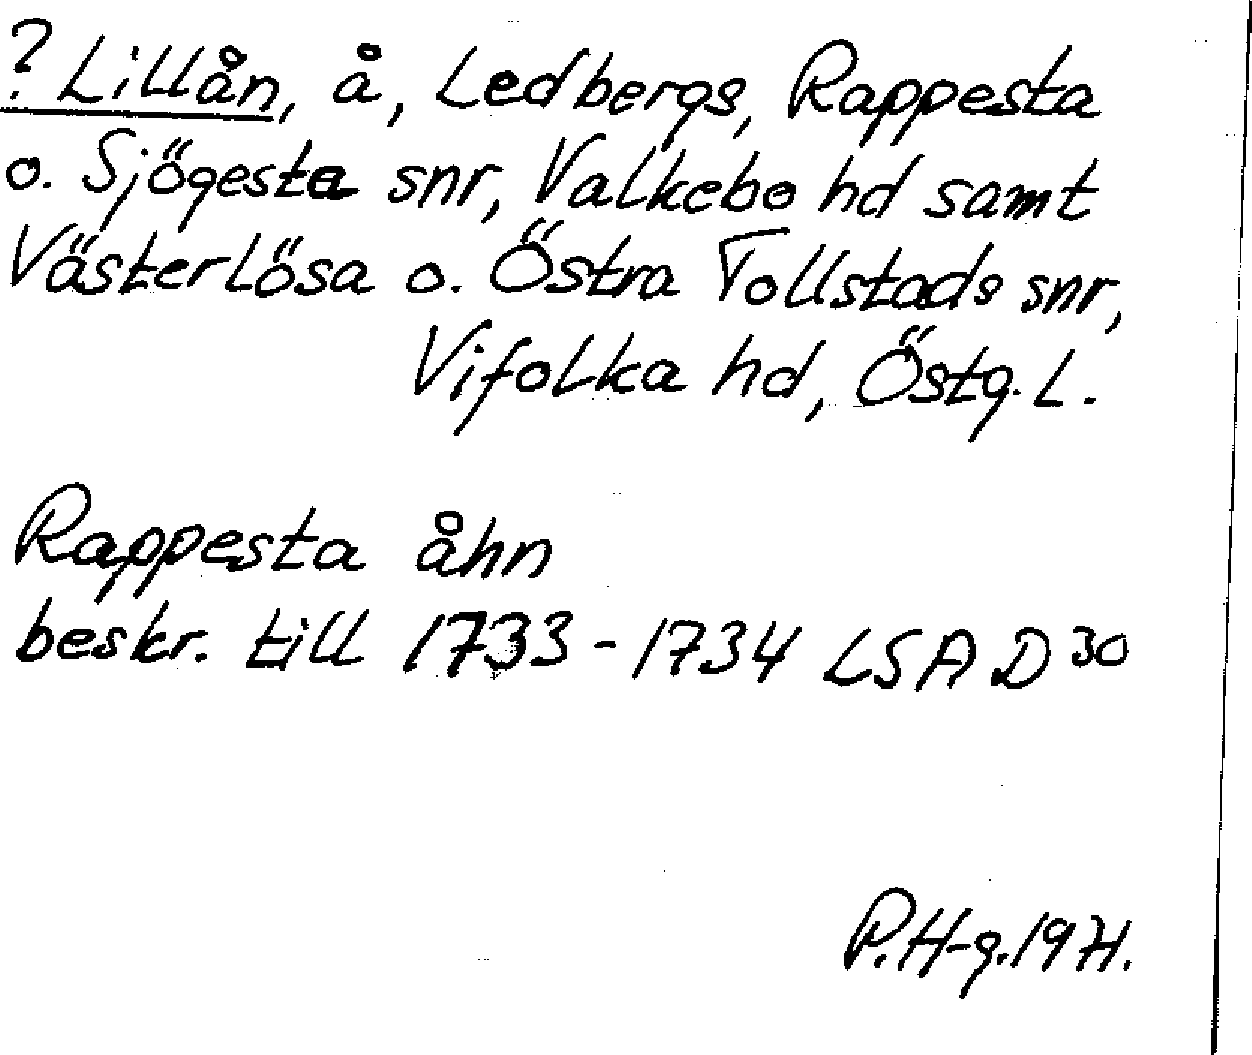 ? Lillån, å, Ledbergs, Rappesta
o. Sjögesta snr, Valkebo hd samt
Västerlösa o. Östra Tollstads snr,
Vifolka hd, Östg. L.
Rappesta åhn
beskr. till 1733-1734 LSA D 30
P. H-g. 1971.